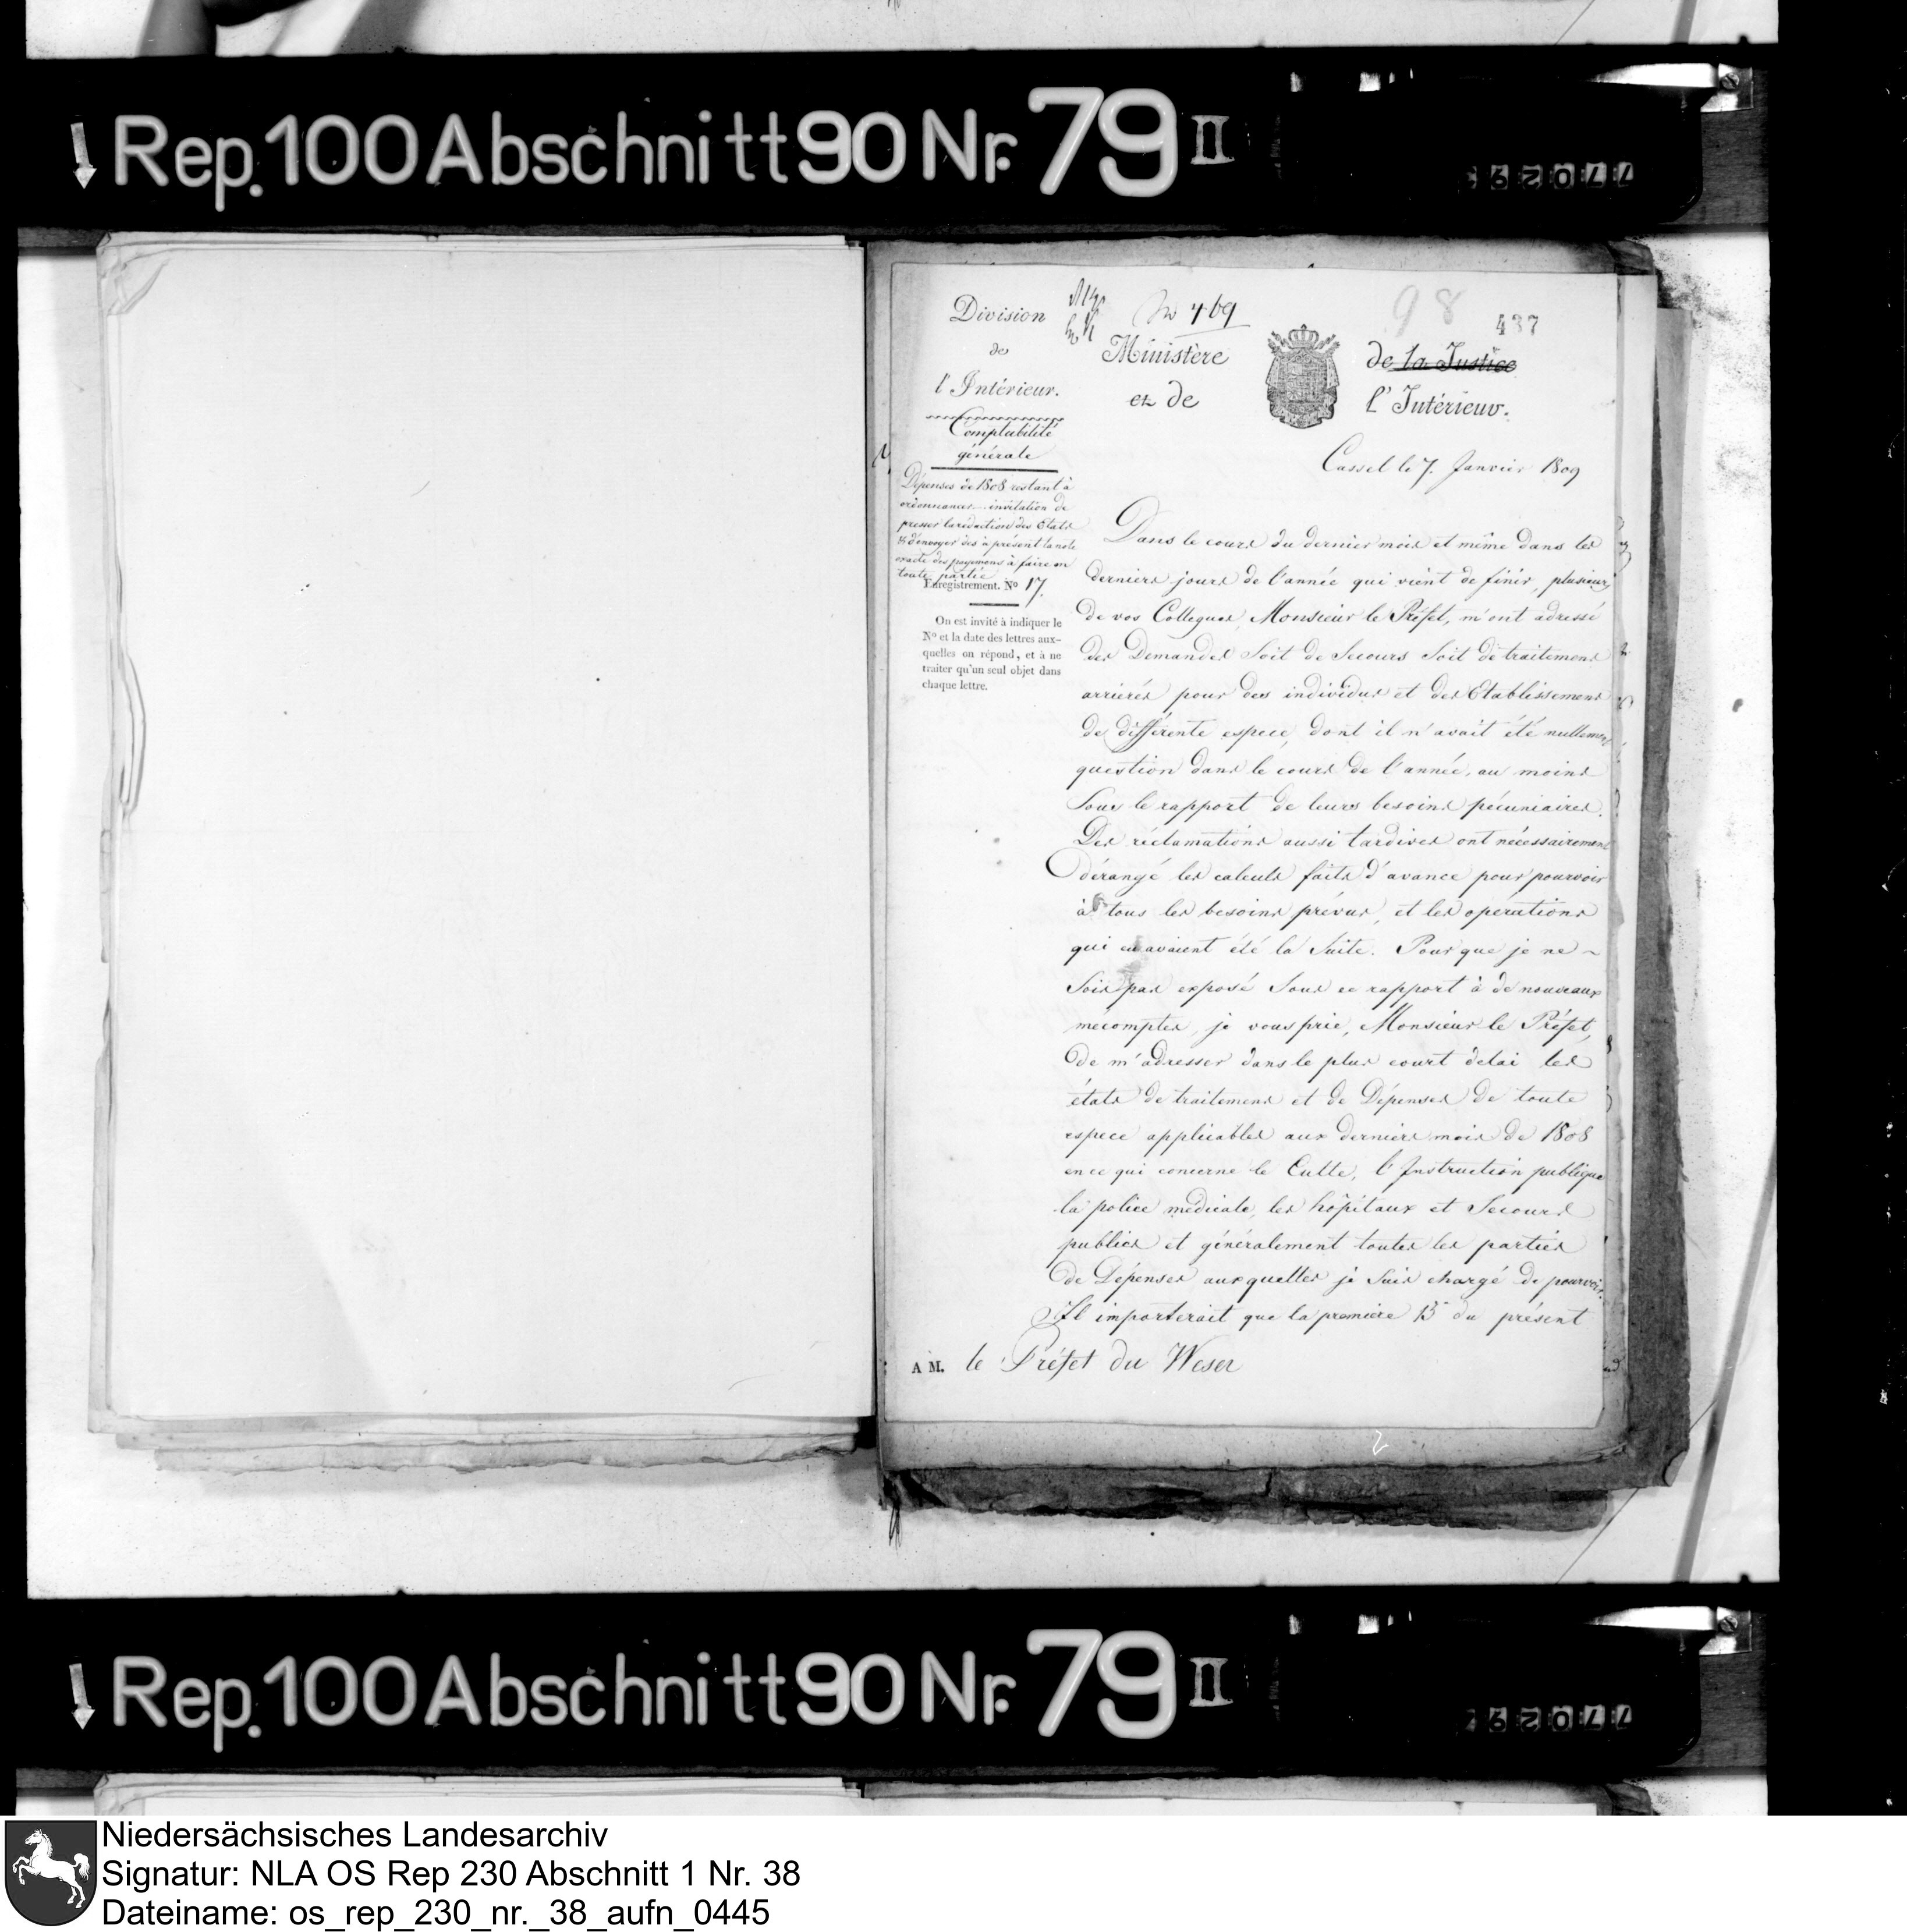 Rep. 100 Abschnitt 90 Nr. 79 II
77029
Division
de
l'Intérieur.
Comptabilité
générale
Dépenses de 1808 restant à
ordonnancer. invitation de
presser la rédaction des Etats
& d'envoyer dès à présent la note
exacte des payemens à faire en
toute partie
Enregistrement. No 17.
On est invité à indiquer le
No et la date des lettres aux-
quelles on répond, et à ne
traiter qu'un seul objet dans
chaque lettre.
No 469
98
437
Ministère de la Justice
et de l'Intérieur.
Cassel le 7. Janvier 1809
Dans le cours du dernier mois et même dans les
derniers jours de l'année qui vient de finir, plusieurs
de vos Collegues, Monsieur le Préfet, m'ont adressé
des Demandes Soit de Secours Soit de traitemens
arriérés pour des individus et des Etablissemens
de différente espece, dont il n'avait été nullement
question dans le cours de l'année, au moins
Sous le rapport de leurs besoins pécuniaires.
Des réclamations aussi tardives ont nécessairement
dérangé les calculs faits d'avance pour pourvoir
à tous les besoins prévus, et les opérations
qui en avaient été la Suite. Pour que je ne
Sois pas exposé Sous ce rapport à de nouveaux
mécomptes, je vous prie, Monsieur le Préfet,
de m'adresser dans le plus court delai les
états de traitemens et de Dépenses de toute
espece applicables aux derniers mois de 1808
en ce qui concerne le Culte, l'Instruction publique
la police médicale, les hôpitaux et Secours
publics et généralement toutes les parties
de Dépenses auxquelles je Suis chargé de pourvoir.
Il importerait que la premiere 15e du présent
A M. le Préfet du Weser
Rep. 100 Abschnitt 90 Nr. 79 II
77029
Niedersächsisches Landesarchiv
Signatur: NLA OS Rep 230 Abschnitt 1 Nr. 38
Dateiname: os_rep_230_nr._38_aufn_0445